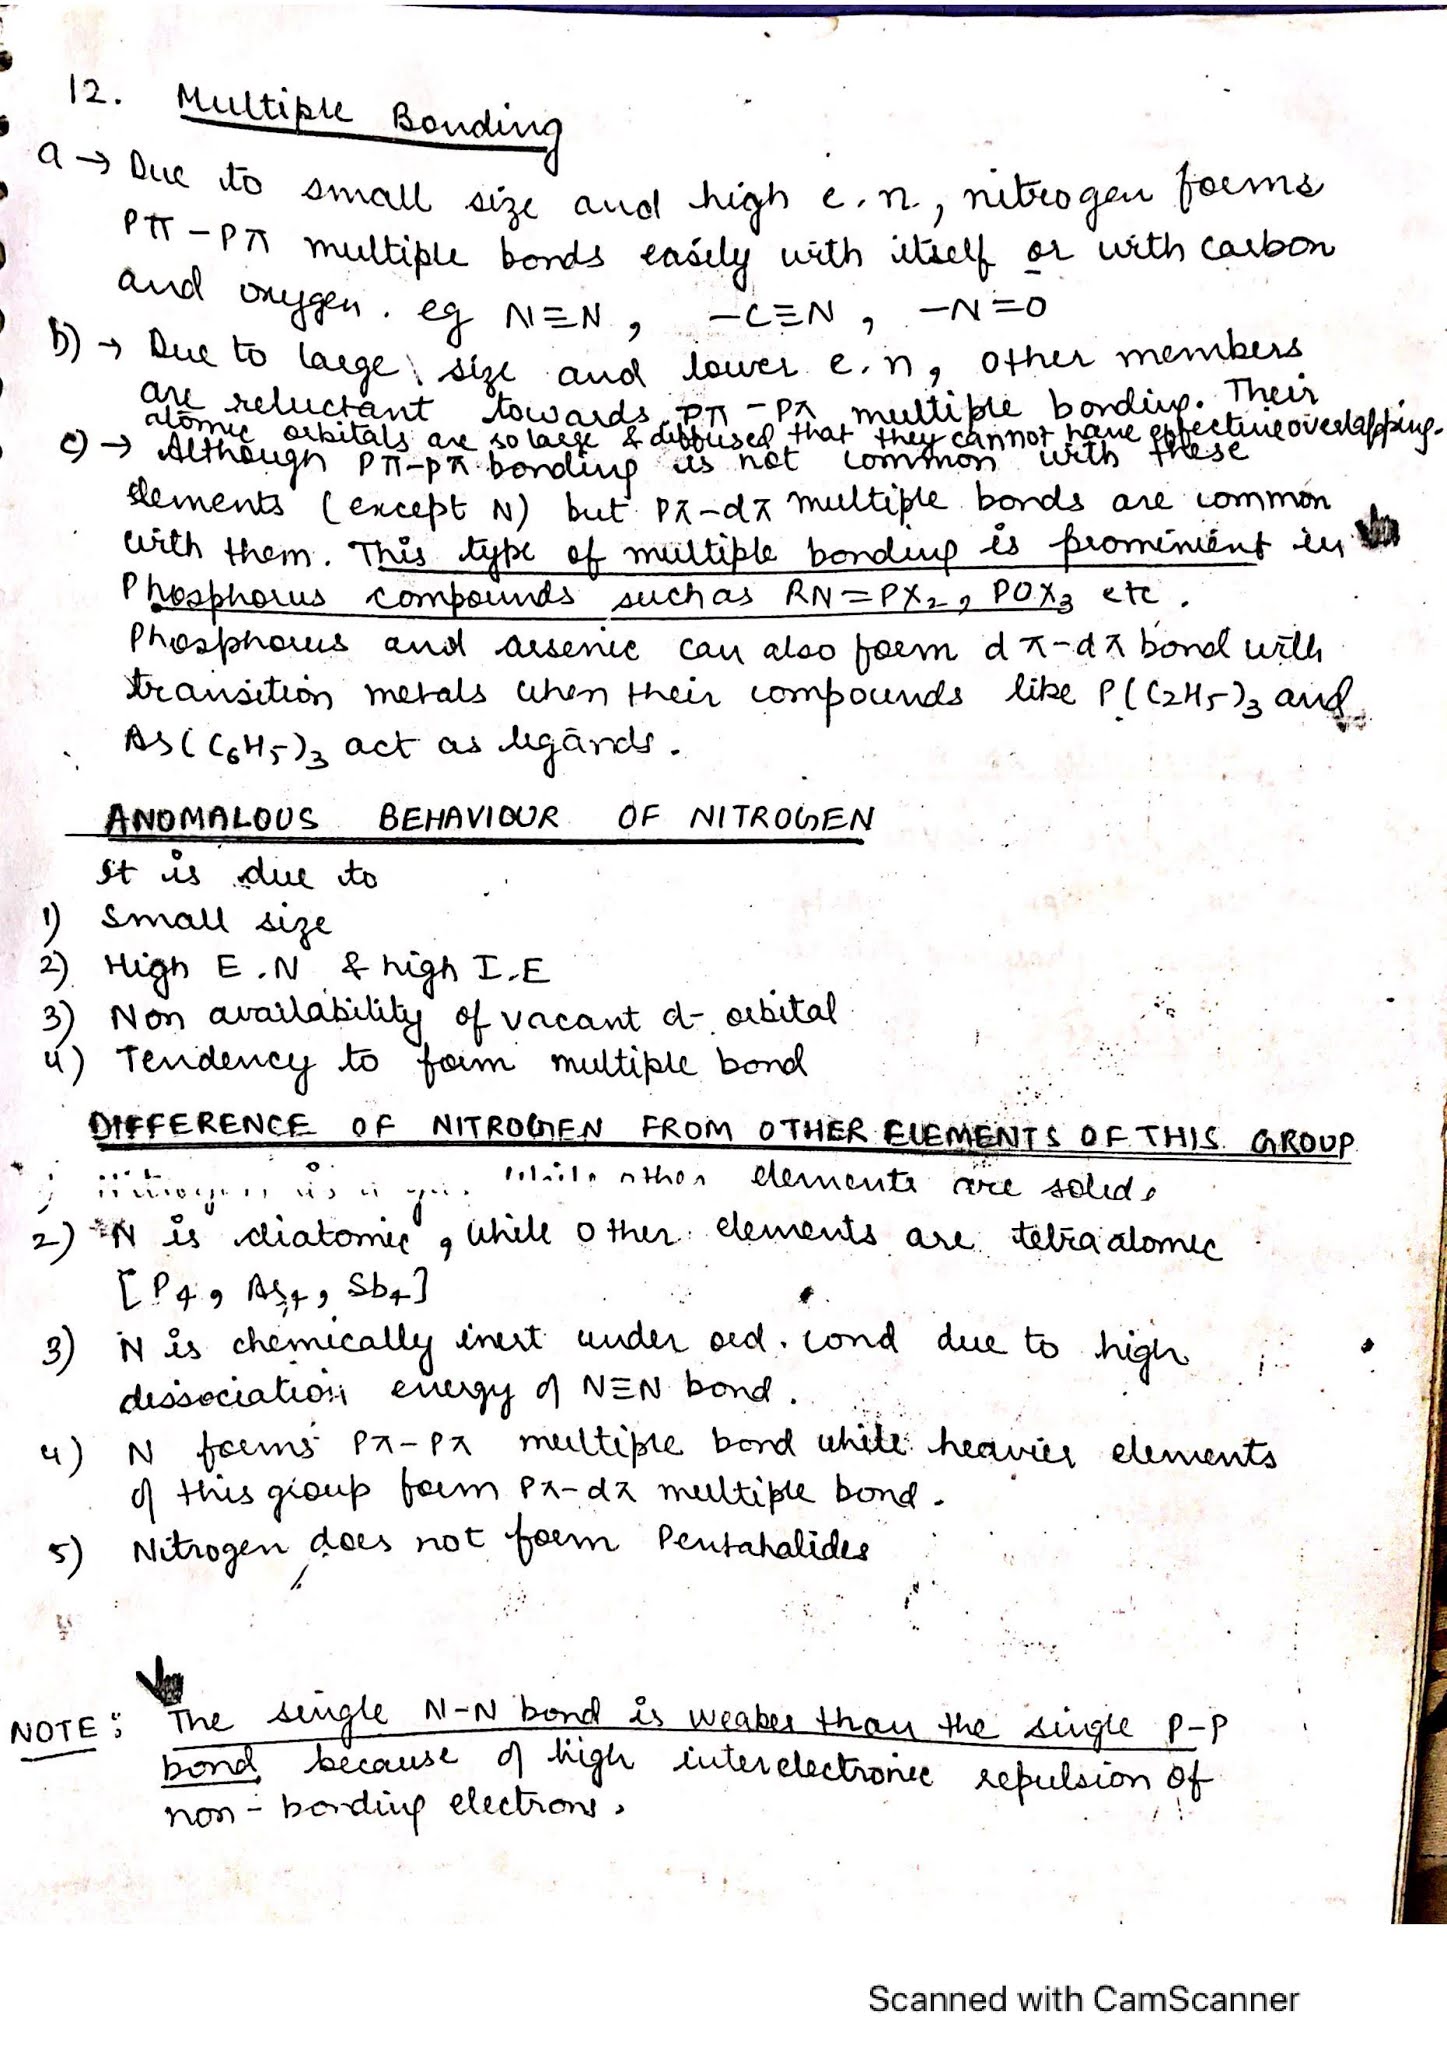 12. Multiple Bonding
a → Due to small size and high e.n, nitrogen forms
Pπ-Pπ multiple bonds easily with itself or with carbon
and oxygen. eg N≡N, -C≡N, -N=O
b) → Due to large size and lower e.n, other members
are reluctant towards pπ-pπ multiple bonding. Their
atomic orbitals are so large & diffused that they cannot have effective overlapping.
c) → Although pπ-pπ bonding is not common with these
elements (except N) but pπ-dπ multiple bonds are common
with them. This type of multiple bonding is prominient in
Phosphorus compounds such as RN=PX₂, POX₃ etc.
Phosphorus and arsenic can also form dπ-dπ bond with
transition metals when their compounds like P(C₂H₅)₃ and
As(C₆H₅)₃ act as ligands.
ANOMALOUS BEHAVIOUR OF NITROGEN
It is due to
1) Small size
2) High E.N & high I.E
3) Non availability of vacant d- orbital
4) Tendency to form multiple bond
DIFFERENCE OF NITROGEN FROM OTHER ELEMENTS OF THIS GROUP
Nitrogen is a gas while other elements are solid.
2) N is diatomic, while other elements are tetra atomic
[P₄, As₄, Sb₄]
3) N is chemically inert under ord. cond due to high
dissociation energy of N≡N bond.
4) N forms pπ-pπ multiple bond while heavier elements
of this group form pπ-dπ multiple bond.
5) Nitrogen does not form Pentahalides
NOTE: The single N-N bond is weaker than the single P-P
bond because of high interelectronic repulsion of
non-bonding electrons.
Scanned with CamScanner